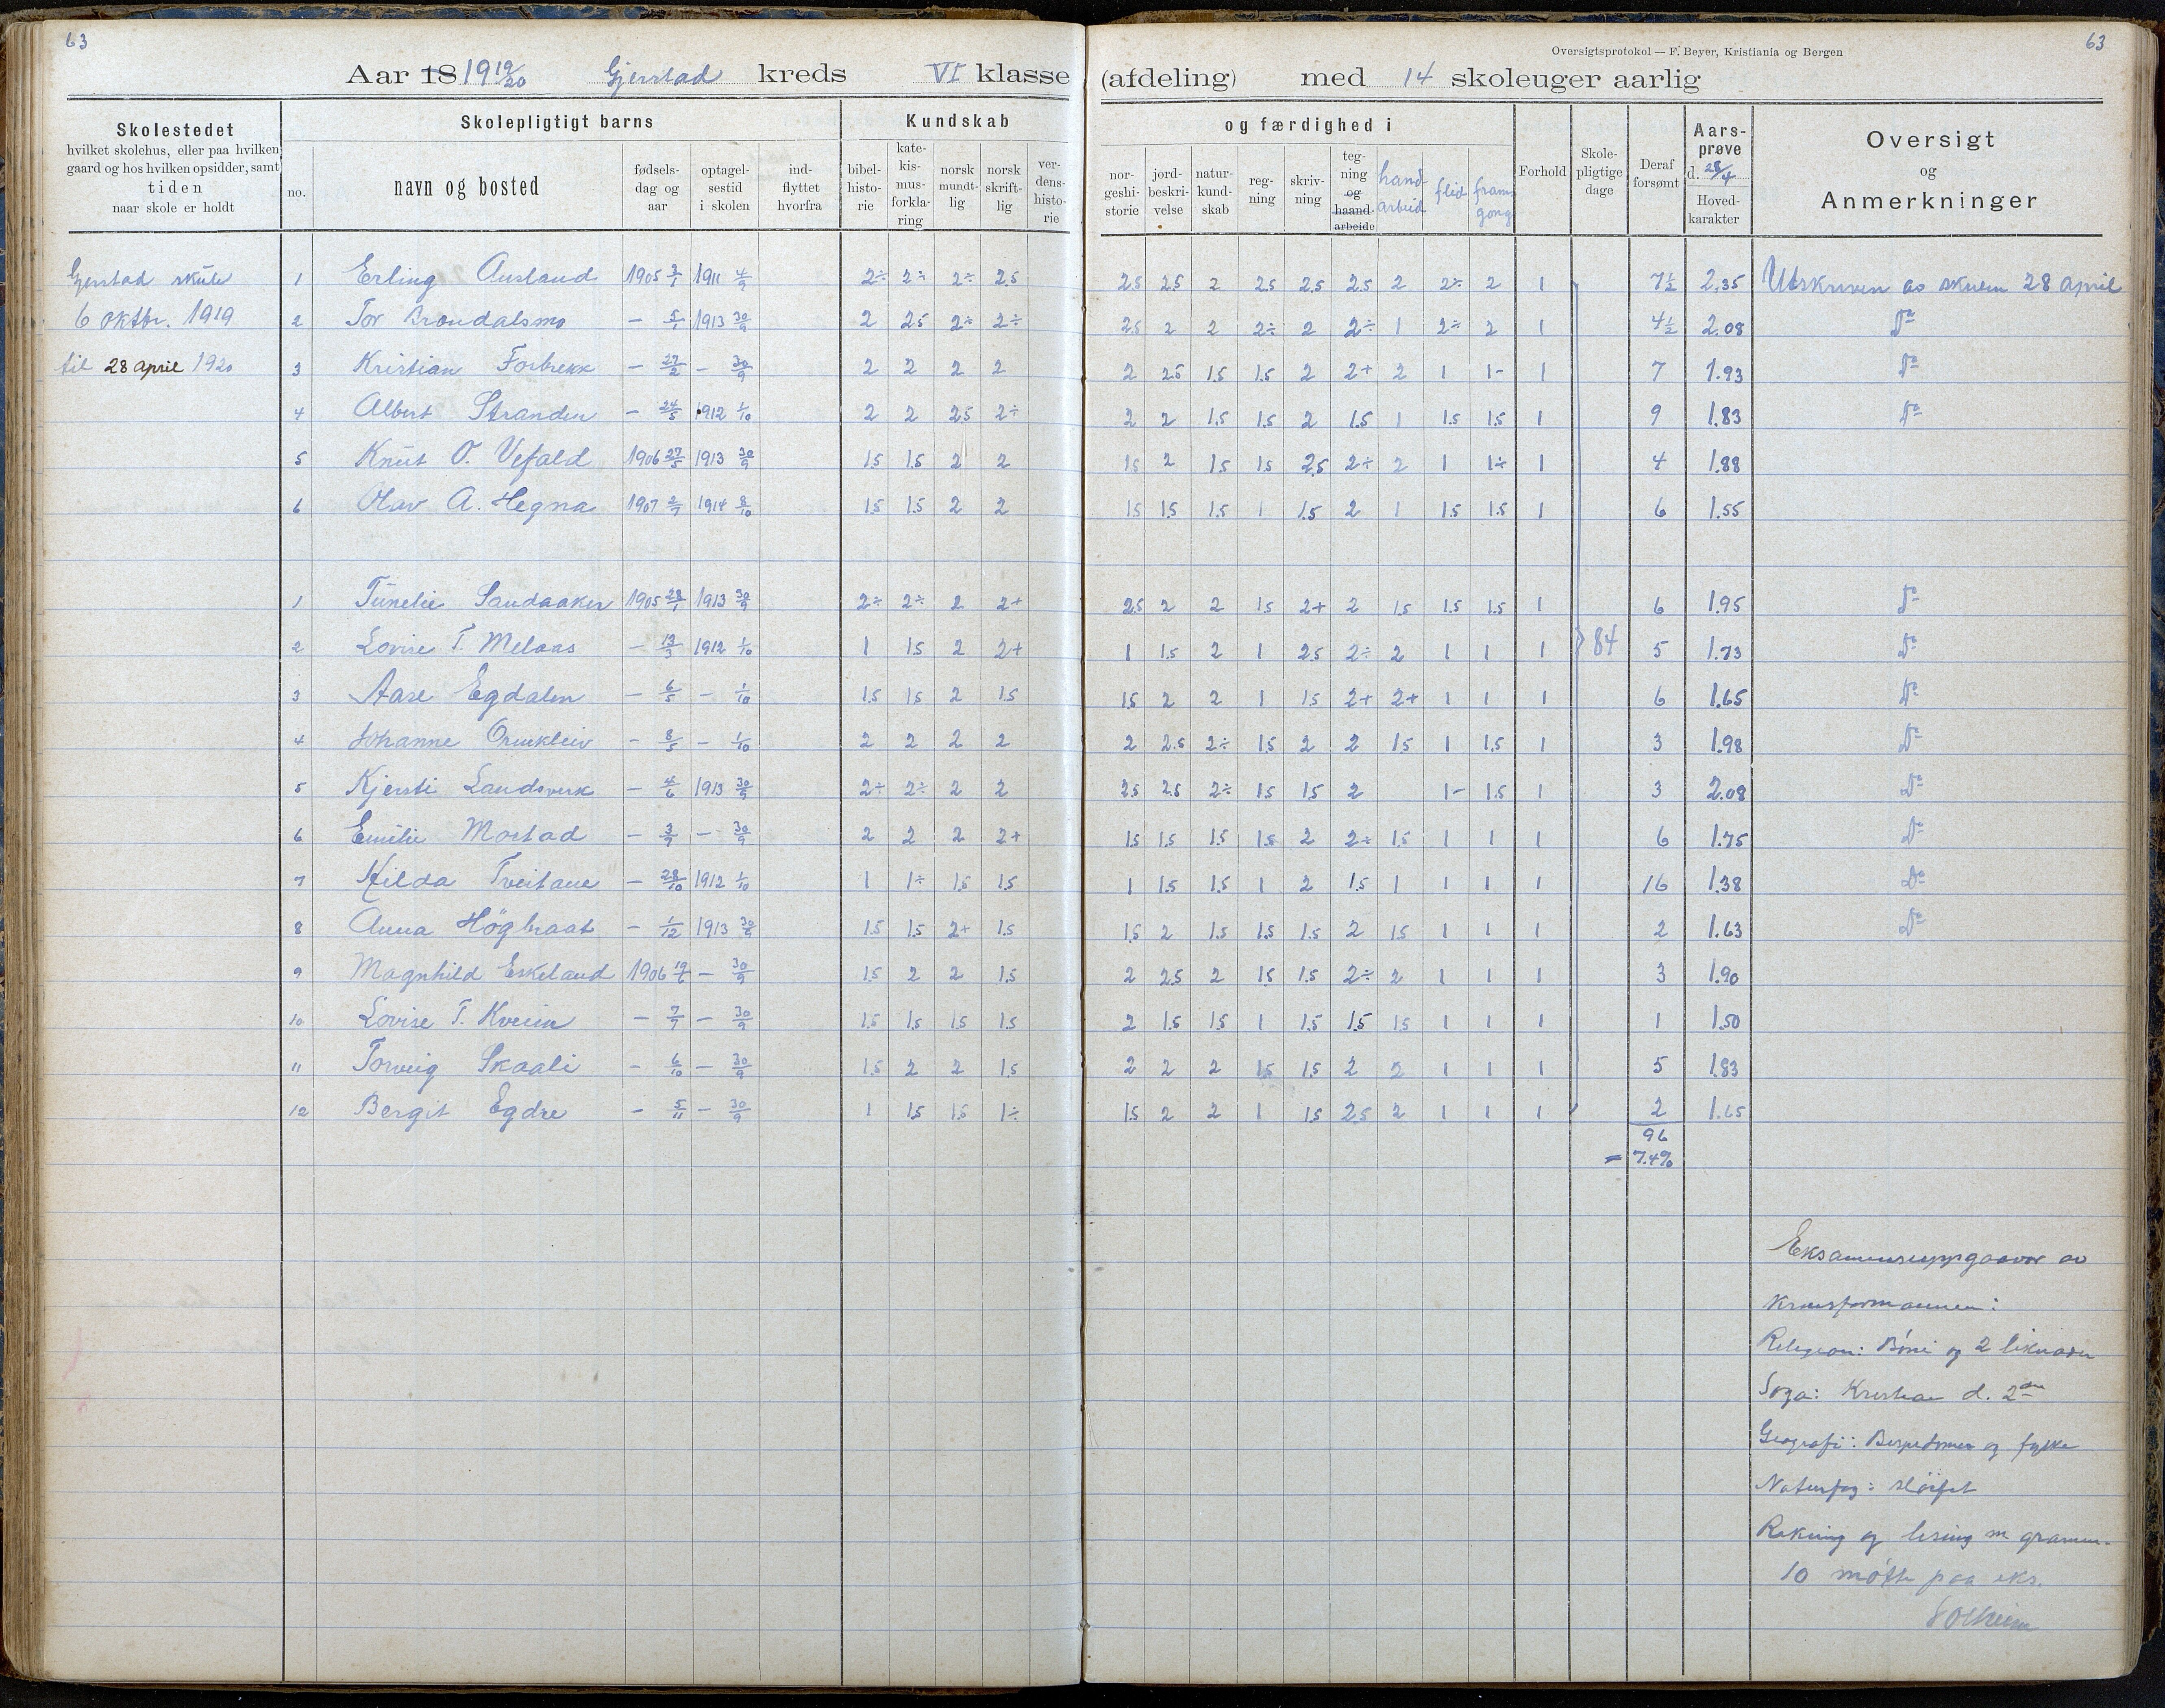 63
63
Oversigtsprotokol — F. Beyer, Kristiania og Bergen
Aar 18 1919/20 Gjerstad kreds VI klasse (afdeling) med 14 skoleuger aarlig
Skolestedet
hvilket skolehus, eller paa hvilken
gaard og hos hvilken opsidder, samt
tiden
naar skole er holdt
Skolepligtigt barns
no.
navn og bosted
fødsels-
dag og
aar
optagel-
sestid
i skolen
ind-
flyttet
hvorfra
Kundskab
bibel-
histo-
rie
kate-
kis-
mus-
forkla-
ring
norsk
mundt-
lig
norsk
skrift-
lig
ver-
dens-
histo-
rie
og færdighed i
nor-
geshi-
storie
jord-
beskri-
velse
natur-
kund-
skab
reg-
ning
skriv-
ning
teg-
ning
og
haand-
arbeide
hand-
arbeid
flid
fram
gong
Forhold
Skole-
pligtige
dage
Deraf
forsømt
Aars-
prøve
d. 28/4
Hoved-
karakter
Oversigt
og
Anmerkninger
Gjerstad skule
6 oktbr. 1919
til 28 april 1920
1 Erling Ausland 1905 3/1 1911 4/9 2÷ 2÷ 2÷ 2.5 2.5 2.5 2 2.5 2.5 2.5 2 2÷ 2 1 7½ 2.35 Utskriven av skulen 28 april
2 Tor Brøndalsmo — 5/1 1913 30/9 2 2.5 2÷ 2÷ 2.5 2 2 2÷ 2 2÷ 1 2÷ 2 1 4½ 2.08 Do
3 Kristian Forbrekk — 27/2 — 30/9 2 2 2 2 2 2.5 1.5 1.5 2 2+ 2 1 1- 1 7 1.93 Do
4 Albert Stranden — 24/5 1912 1/10 2 2 2.5 2÷ 2 2 1.5 1.5 2 1.5 1 1.5 1.5 1 9 1.83 Do
5 Knut O. Vefald 1906 27/5 1913 30/9 1.5 1.5 2 2 1.5 2 1.5 1.5 2.5 2÷ 2 1 1÷ 1 4 1.88
6 Olav A. Hegna 1907 2/7 1914 8/10 1.5 1.5 2 2 1.5 1.5 1.5 1 1.5 2 1 1.5 1.5 1 6 1.55
1 Tunelie Sandaaker 1905 28/1 1913 30/9 2÷ 2÷ 2 2+ 2.5 2 2 1.5 2+ 2 1.5 1.5 1.5 1 6 1.95 Do
2 Lovise T. Melaas — 13/3 1912 1/10 1 1.5 2 2+ 1 1.5 2 1 2.5 2÷ 2 1 1 1 84 5 1.73 Do
3 Aase Egdalen — 6/5 — 1/10 1.5 1.5 2 1.5 1.5 2 2 1 1.5 2+ 2+ 1 1 1 6 1.65 Do
4 Johanne Ormkleiv — 8/5 — 1/10 2 2 2 2 2 2.5 2÷ 1.5 2 2 1.5 1 1.5 1 3 1.98 Do
5 Kjersti Landsverk — 4/6 1913 30/9 2÷ 2÷ 2 2 2.5 2.5 2÷ 1.5 1.5 2 1- 1.5 1 3 2.08 Do
6 Emilie Mostad — 3/7 — 30/9 2 2 2 2+ 1.5 1.5 1.5 1.5 2 2÷ 1.5 1 1 1 6 1.75 Do
7 Hilda Tveitane — 28/10 1912 1/10 1 1÷ 1.5 1.5 1 1.5 1.5 1 2 1.5 1 1 1 1 16 1.38 Do
8 Anna Høgbraat — 1/12 1913 30/9 1.5 1.5 2+ 1.5 1.5 2 1.5 1.5 1.5 2 1.5 1 1 1 2 1.63 Do
9 Magnhild Eskeland 1906 19/6 — 30/9 1.5 2 2 1.5 2 2.5 2 1.5 1.5 2÷ 2 1 1 1 3 1.90
10 Lovise T. Kveim — 7/7 — 30/9 1.5 1.5 1.5 1.5 2 1.5 1.5 1 1.5 1.5 1.5 1 1 1 1 1.50
11 Torveig Skaali — 6/10 — 30/9 1.5 2 2 1.5 2 2 2 1.5 1.5 2 2 1 1 1 5 1.83
12 Bergit Egdre — 5/11 — 30/9 1 1.5 1.5 1÷ 1.5 2 2 1 1.5 2.5 2 1 1 1 2 1.65
96
= 7.4%
Eksamensuppgaavor av
Krinsformannen:
Religion: Bøni og 2 liknader
Soga: Kristian d. 2den
Geografi: og fylke
Naturfag:
Rekning og lesing m gramm.
10 møtte paa eks.
Solheim